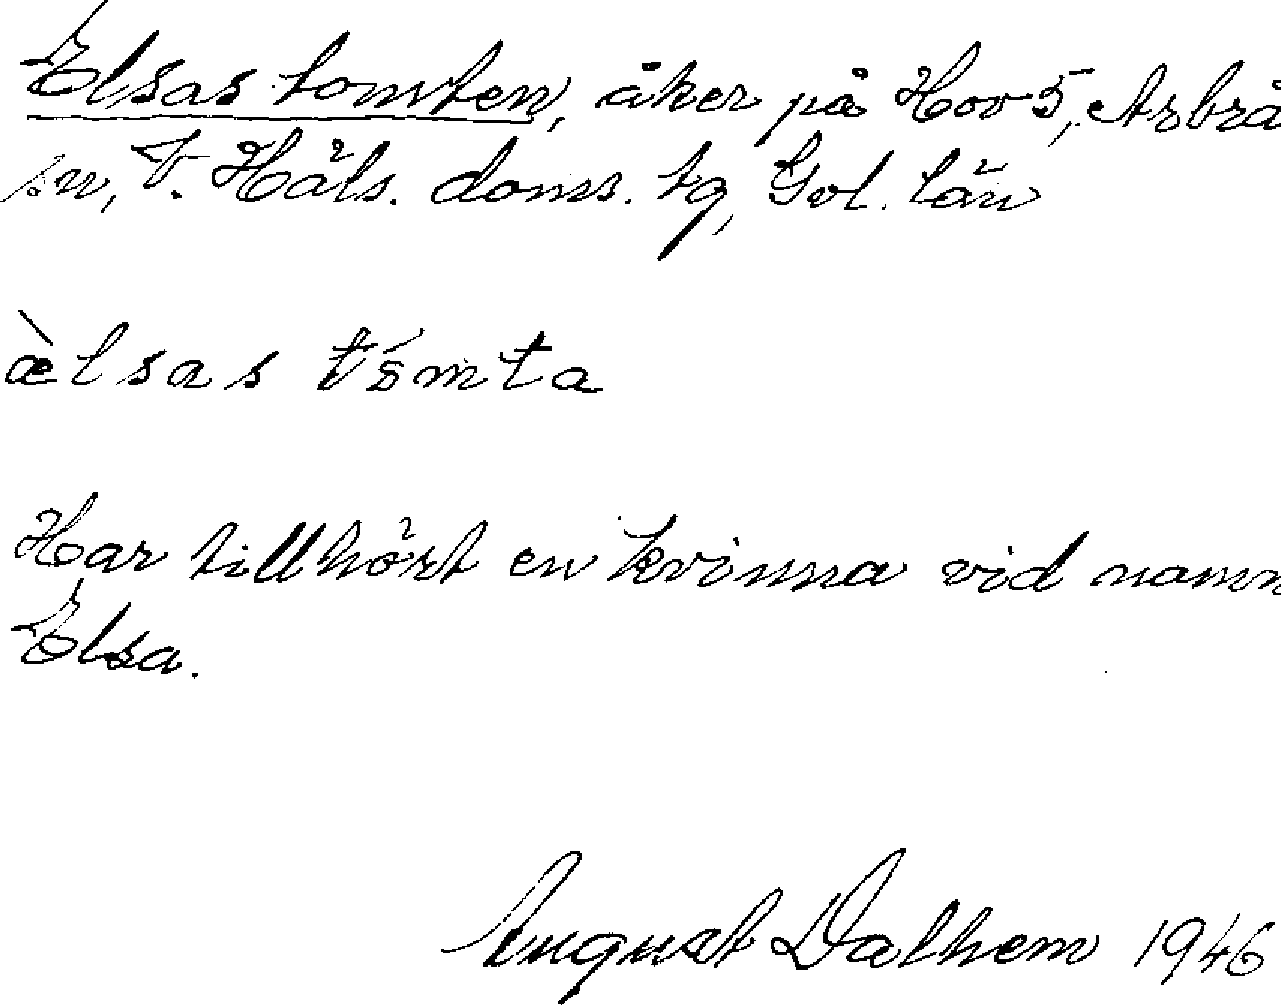 Elsas tomten, åker på Hov 5, Arbrå
sn, V. Häls. doms. tg, Gvl. län
æ̀lsas tǿmta
Har tillhört en kvinna vid namn
Elsa.
August Dalhem 1946